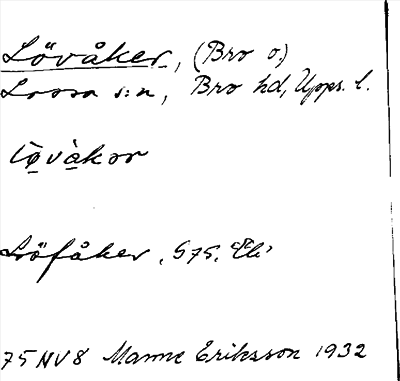 Lövåker, (Bro o.)
Lossa s:n, Bro hd, Upps. l.
l̀øvàkər
Löfåker, G75,
75NV8 Manne Eriksson 1932